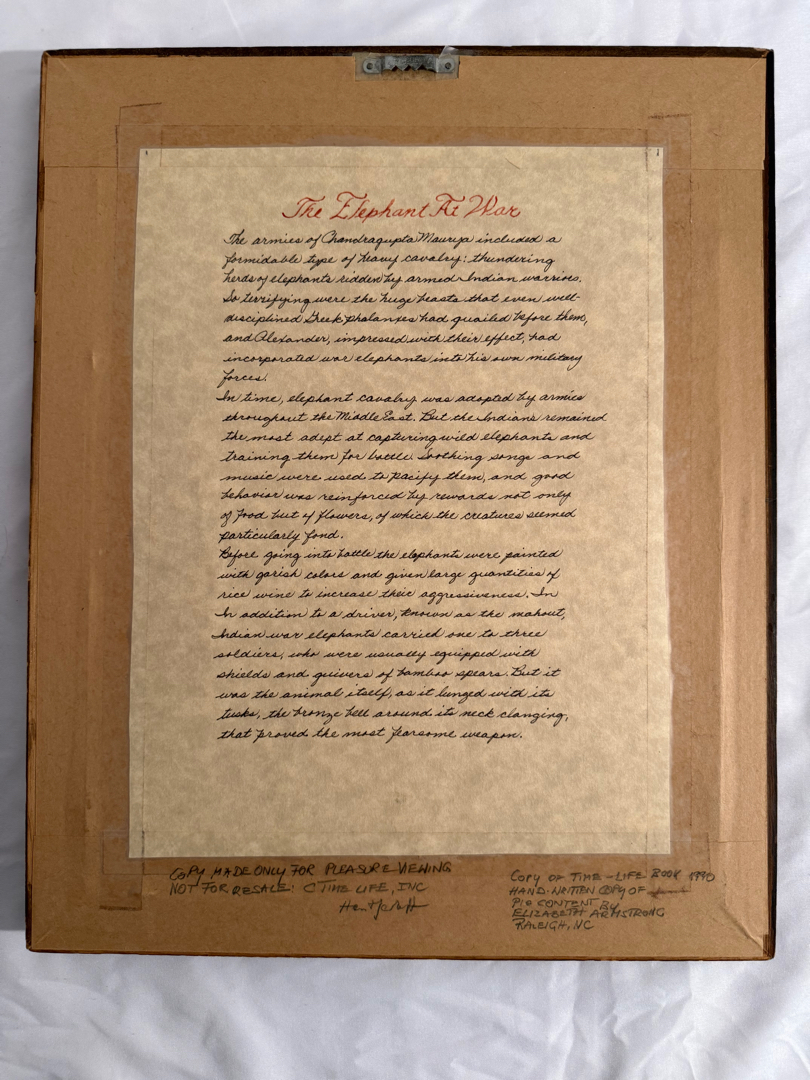 The Elephant At War
The armies of Chandragupta Maurya included a
formidable type of heavy cavalry: thundering
herds of elephants ridden by armed Indian warriors.
So terrifying were the huge beasts that even well-
disciplined Greek phalanxes had quailed before them,
and Alexander, impressed with their effect, had
incorporated war elephants into his own military
forces.
In time, elephant cavalry was adopted by armies
throughout the Middle East. But the Indians remained
the most adept at capturing wild elephants and
training them for battle. Soothing songs and
music were used to pacify them, and good
behavior was reinforced by rewards not only
of food but of flowers, of which the creatures seemed
particularly fond.
Before going into battle the elephants were painted
with garish colors and given large quantities of
rice wine to increase their aggressiveness. In
In addition to a driver, known as the mahout,
Indian war elephants carried one to three
soldiers, who were usually equipped with
shields and quivers of bamboo spears. But it
was the animal itself, as it lunged with its
tusks, the bronze bell around its neck clanging,
that proved the most fearsome weapon.
COPY MADE ONLY FOR PLEASURE VIEWING
NOT FOR RESALE: © TIME LIFE, INC
COPY OF TIME-LIFE BOOK 1990
HAND-WRITTEN COPY OF
PIC CONTENT BY
ELIZABETH ARMSTRONG
RALEIGH, NC